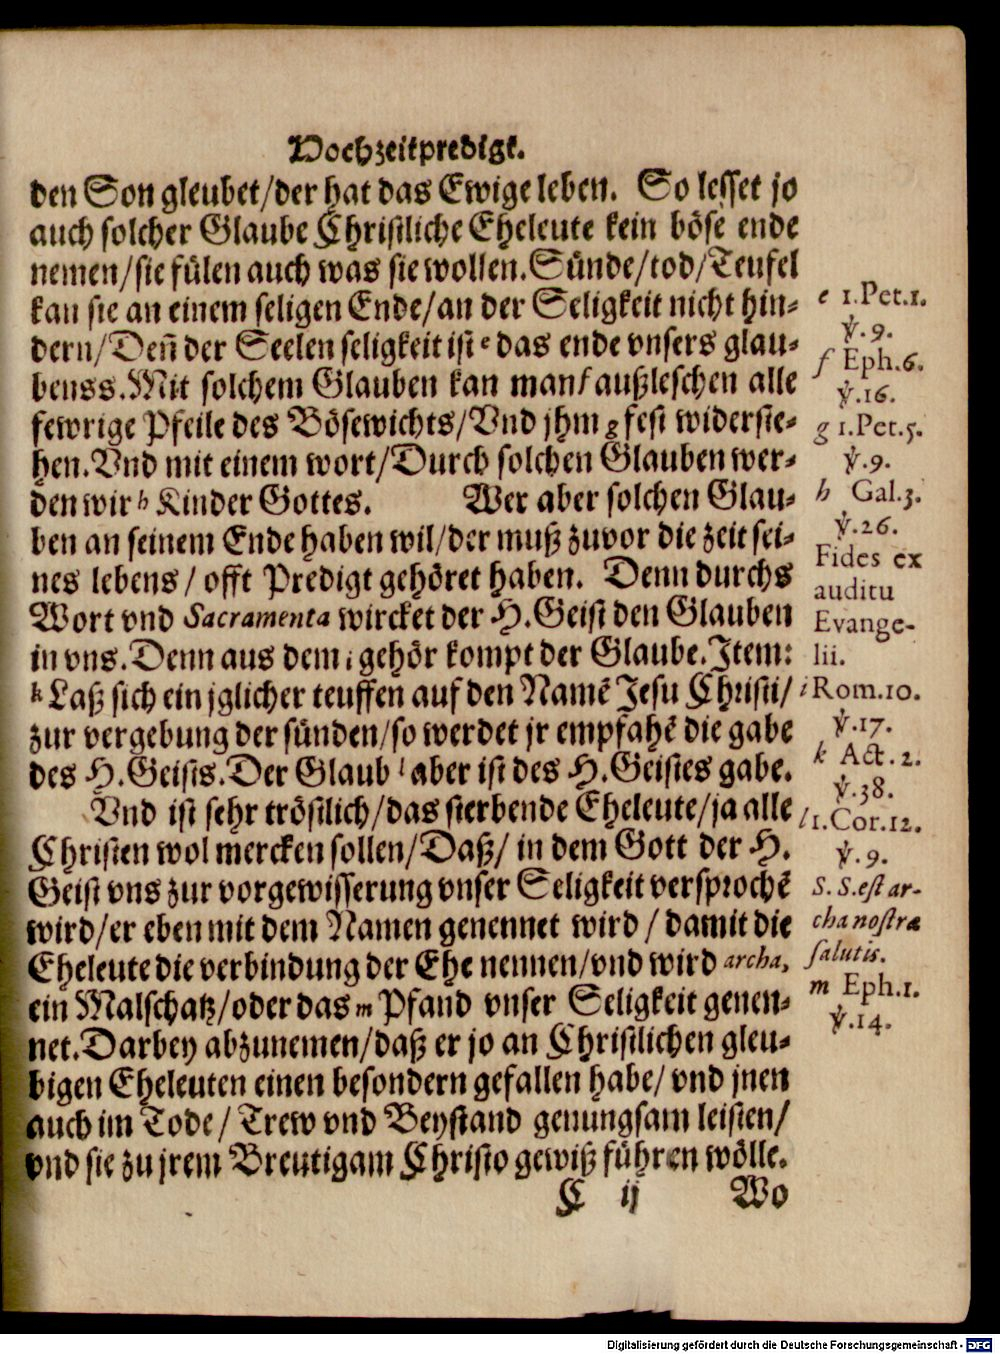 Hochzeitpredigt.
den Son gleubet/der hat das Ewige leben. So lesset jo
auch solcher Glaube Christliche Eheleute kein böse ende
nemen/sie fülen auch was sie wollen. Sünde/tod/Teufel
kan sie an einem seligen Ende/an der Seligkeit nicht hin-
dern/Deñ der Seelen seligkeit ist e das ende vnsers glau-
benss. Mit solchem Glauben kan man f außleschen alle
fewrige Pfeile des Bösewichts/Vnd jhm g fest widerste-
hen. Vnd mit einem wort/Durch solchen Glauben wer-
den wir h Kinder Gottes. Wer aber solchen Glau-
ben an seinem Ende haben wil/der muß zuvor die zeit sei-
nes lebens/ offt Predigt gehöret haben. Denn durchs
Wort vnd Sacramenta wircket der H. Geist den Glauben
in vns. Denn aus dem i gehör kompt der Glaube. Item:
k Laß sich ein jglicher teuffen auf den Namē Jesu Christi/
zur vergebung der sünden/so werdet jr empfahē die gabe
des H. Geists. Der Glaub l aber ist des H. Geistes gabe.
Vnd ist sehr tröstlich/das sterbende Eheleute/ja alle
Christen wol mercken sollen/Daß/ in dem Gott der H.
Geist vns zur vorgewisserung vnser Seligkeit versprochē
wird/er eben mit dem Namen genennet wird/ damit die
Eheleute die verbindung der Ehe nennen/vnd wird archa,
ein Malschatz/oder das m Pfand vnser Seligkeit genen-
net. Darbey abzunemen/daß er jo an Christlichen gleu-
bigen Eheleuten einen besondern gefallen habe/ vnd jnen
auch im Tode/ Trew vnd Beystand genungsam leisten/
vnd sie zu jrem Breutigam Christo gewiß führen wölle.
C ij Wo
e 1. Pet. 1.
℣. 9.
f Eph. 6.
℣. 16.
g 1. Pet. 5.
℣. 9.
h Gal. 3.
℣. 26.
Fides ex
auditu
Evange-
lii.
i Rom. 10.
℣. 17.
k Act. 2.
℣. 38.
l 1. Cor. 12.
℣. 9.
S. S. est ar-
cha nostræ
salutis.
m Eph. 1.
℣. 14.
Digitalisierung gefördert durch die Deutsche Forschungsgemeinschaft - DFG